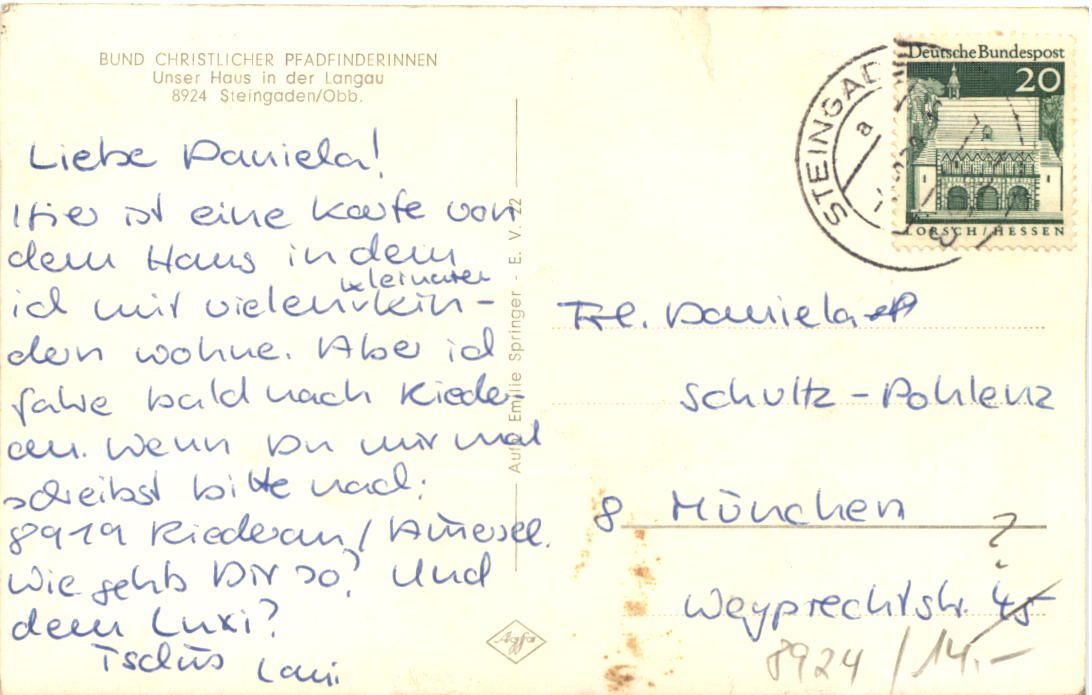 BUND CHRISTLICHER PFADFINDERINNEN
Unser Haus in der Langau
8924 Steingaden/Obb.
Liebe Daniela!
Hier ist eine Karte von
dem Haus in dem
ich mit vielen kleinsten Kin-
dern wohne. Aber ich
fahre bald nach Rieder-
au. Wenn Du mir mal
schreibst bitte nach:
8919 Riederau/Ammersee.
Wie gehts Dir so? Und
dem Luxi?
Tschüs
Aufn. Emilie Springer - E. V. 22
Agfa
STEINGAD
a
Deutsche Bundespost
20
LORSCH/HESSEN
Frl. Daniela
Schultz-Pohlenz
8 München
?
Weyprechtstr. 45
8924 / 14.-